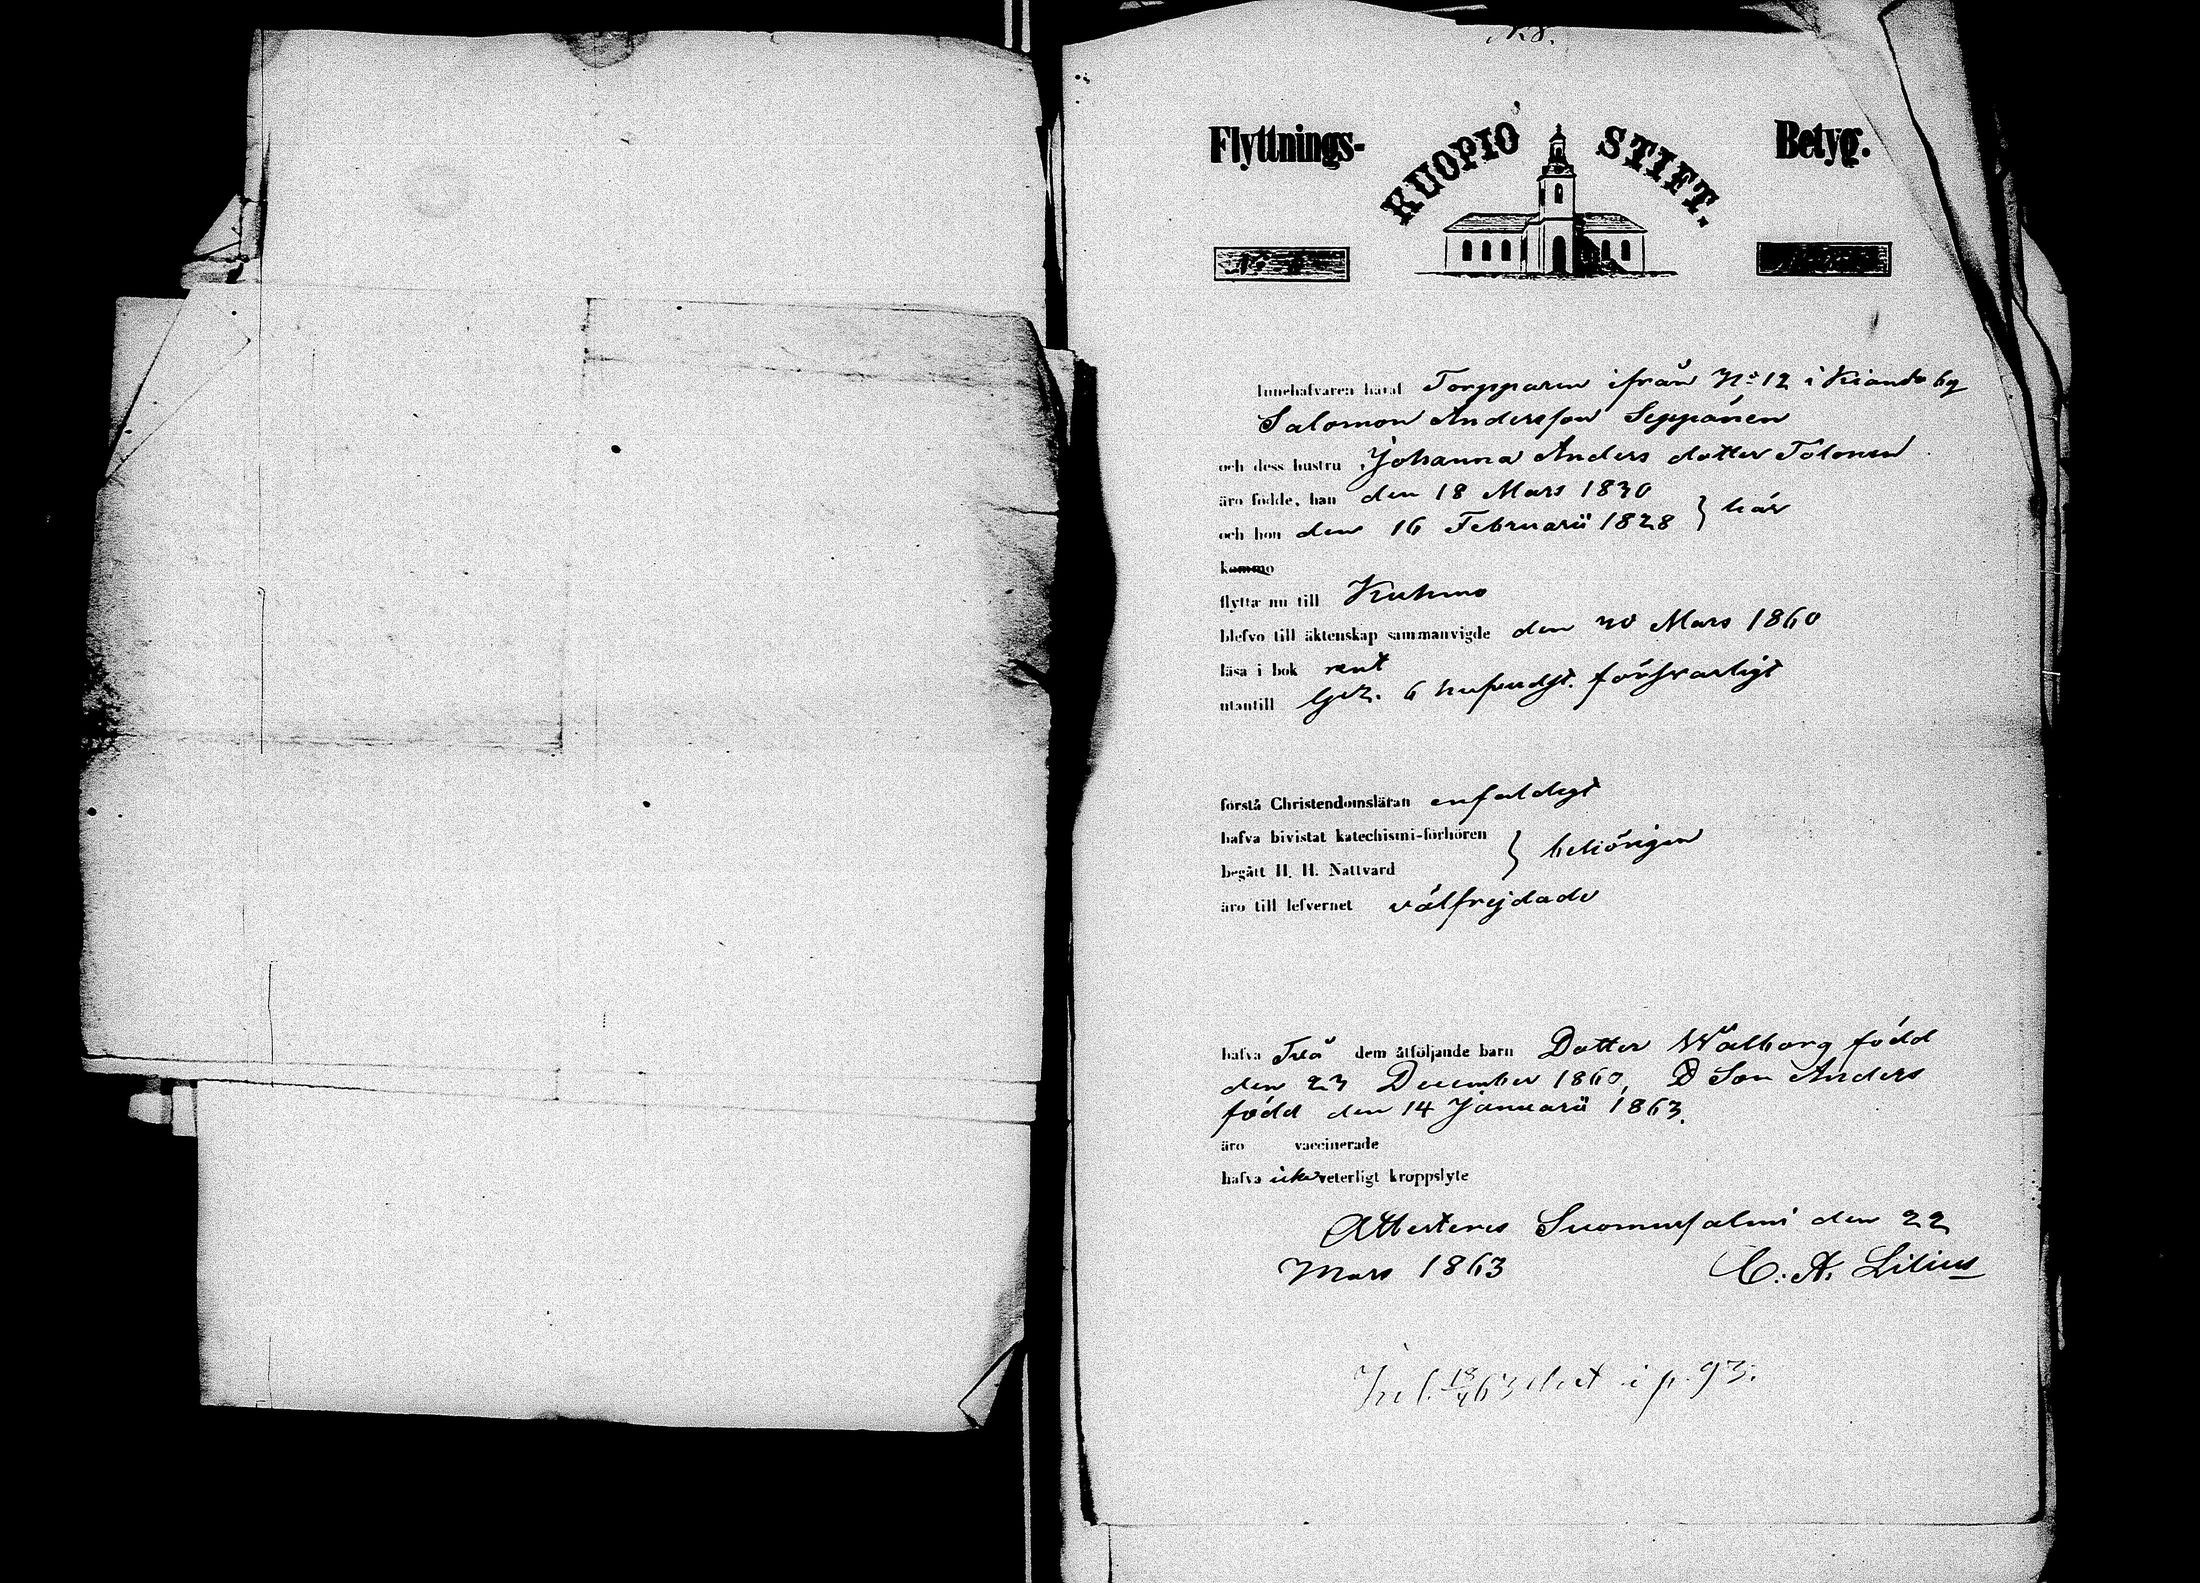 Flyttnings- KUOPIO STIFT. Betyg.
Innehafvaren häraf Torpparen ifrån No 12 i Kianda by
Salomon Andersson Seppänen
och dess hustru Johanna Anders dotter Tolonen
äro födde, han den 18 Mars 1830
och hon den 16 Februarii 1828 } här
komma
flytta nu till Kuhmo
blefvo till äktenskap sammanvigde den 20 Mars 1860
läsa i bok rent
utantill 6 försvarligt
förstå Christendomsläran enfaldigt
hafva bivistat katechismi-förhören
begått H. H. Nattvard } behörigen
äro till lefvernet välfrejdade
hafva Två dem åtföljande barn Dotter Walborg född
den 23 December 1860, Son Anders
född den 14 Januarii 1863.
äro vaccinerade
hafva icke veterligt kroppslyte
Attesteras Suomussalmi den 22
Mars 1863 C. A. Lilius
i p. 93.